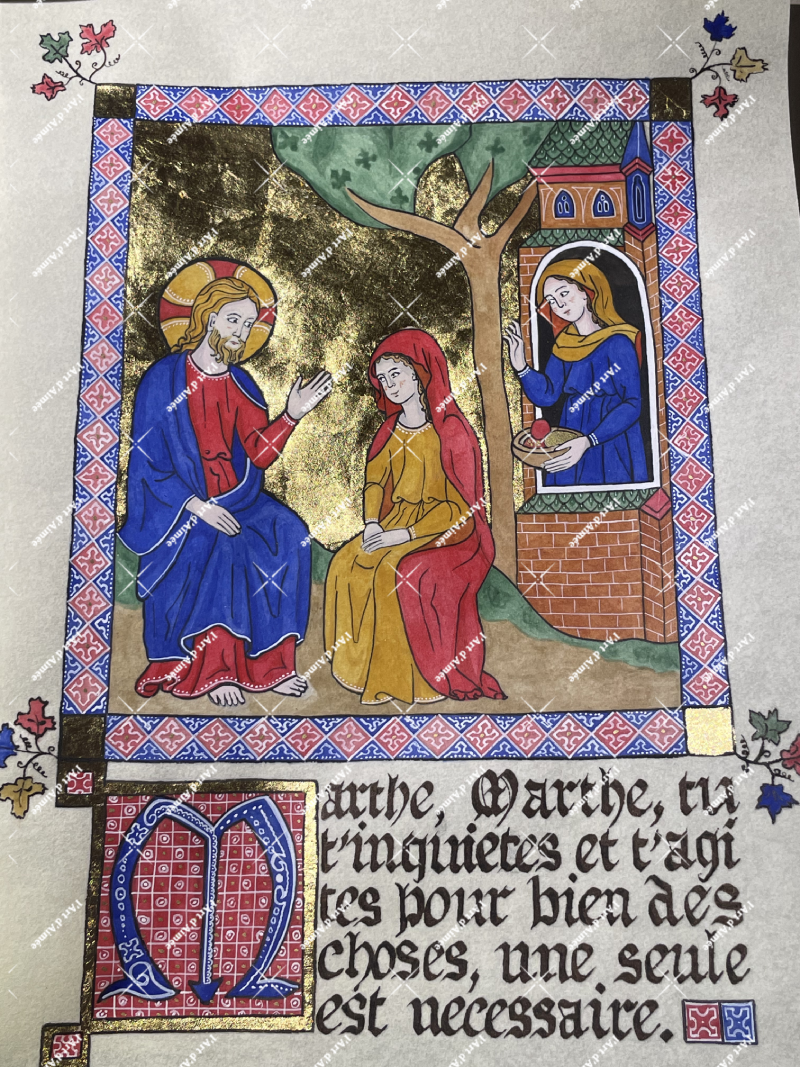 Marthe, Marthe, tu
t'inquietes et t'agi
tes pour bien des
choses, une seule
est necessaire.
l'Art d'Aimée